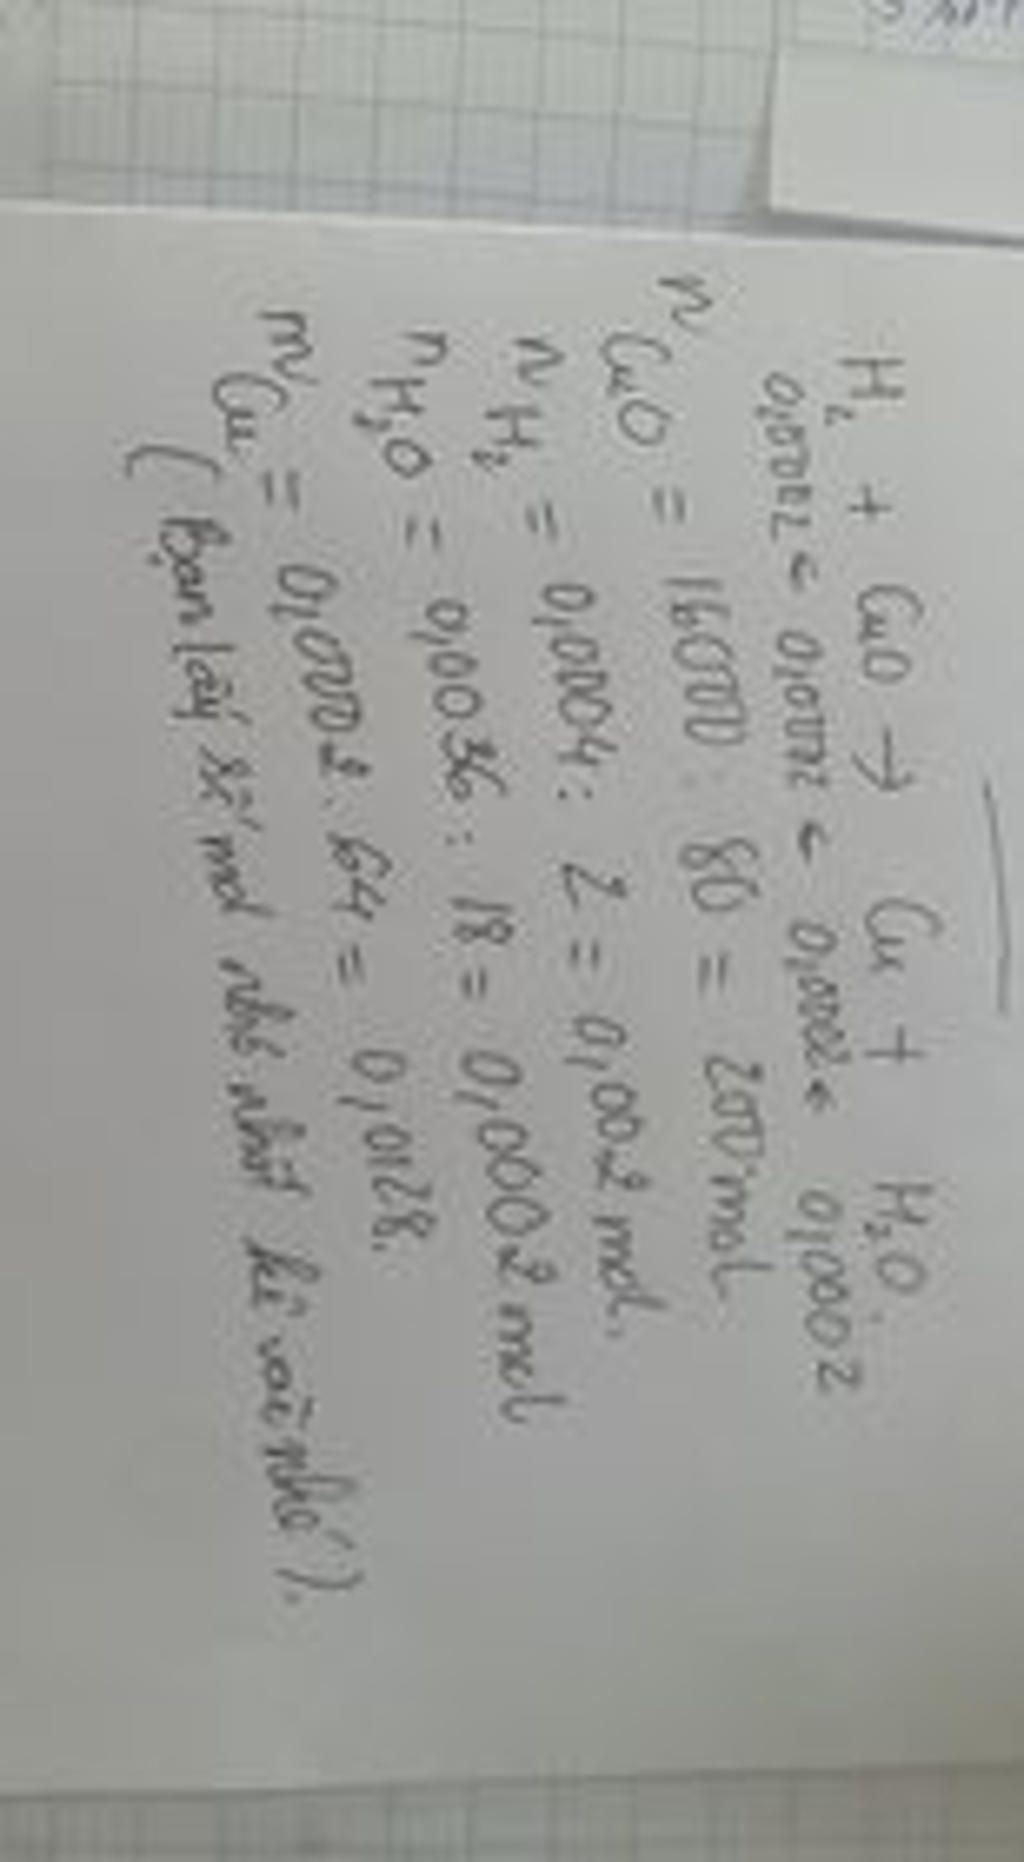 H₂ + CuO → Cu + H₂O
0,0002 ← 0,0002 ← 0,0002 ← 0,0002
nCuO = 16000 : 80 = 200 mol
nH₂ = 0,004 : 2 = 0,002 mol.
nH₂O = 0,0036 : 18 = 0,0002 mol
mCu = 0,0002 . 64 = 0,0128.
(Bạn lấy số mol nhỏ nhất kê vào nhé).